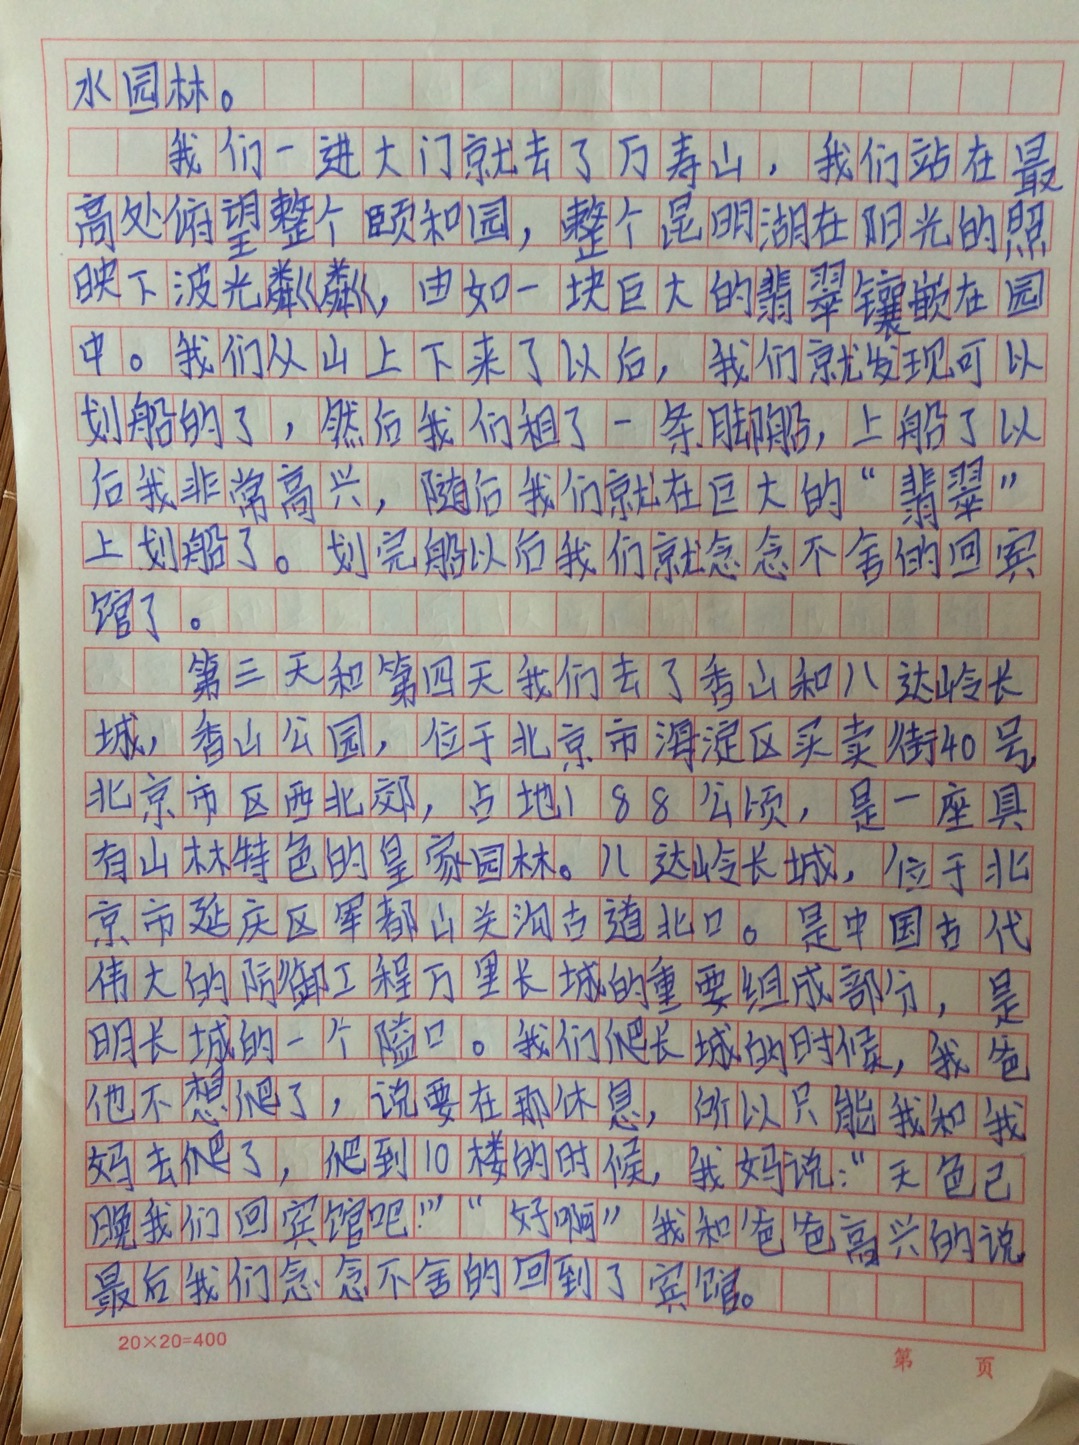 水园林。
我们一进大门就去了万寿山，我们站在最
高处俯望整个颐和园，整个昆明湖在阳光的照
映下波光粼粼，由如一块巨大的翡翠镶嵌在园
中。我们从山上下来了以后，我们就发现可以
划船的了，然后我们租了一条脚船，上船了以
后我非常高兴，随后我们就在巨大的“翡翠”
上划船了。划完船以后我们就念念不舍的回宾
馆了。
第三天和第四天我们去了香山和八达岭长
城，香山公园，位于北京市海淀区买卖街40号，
北京市区西北郊，占地188公顷，是一座具
有山林特色的皇家园林。八达岭长城，位于北
京市延庆区军都山关沟古道北口。是中国古代
伟大的防御工程万里长城的重要组成部分，是
明长城的一个隘口。我们爬长城的时候，我爸
他不想爬了，说要在那休息，所以只能我和我
妈去爬了，爬到10楼的时候，我妈说：“天色已
晚我们回宾馆吧！”“好啊”我和爸爸高兴的说，
最后我们念念不舍的回到了宾馆。
20×20=400
第 页